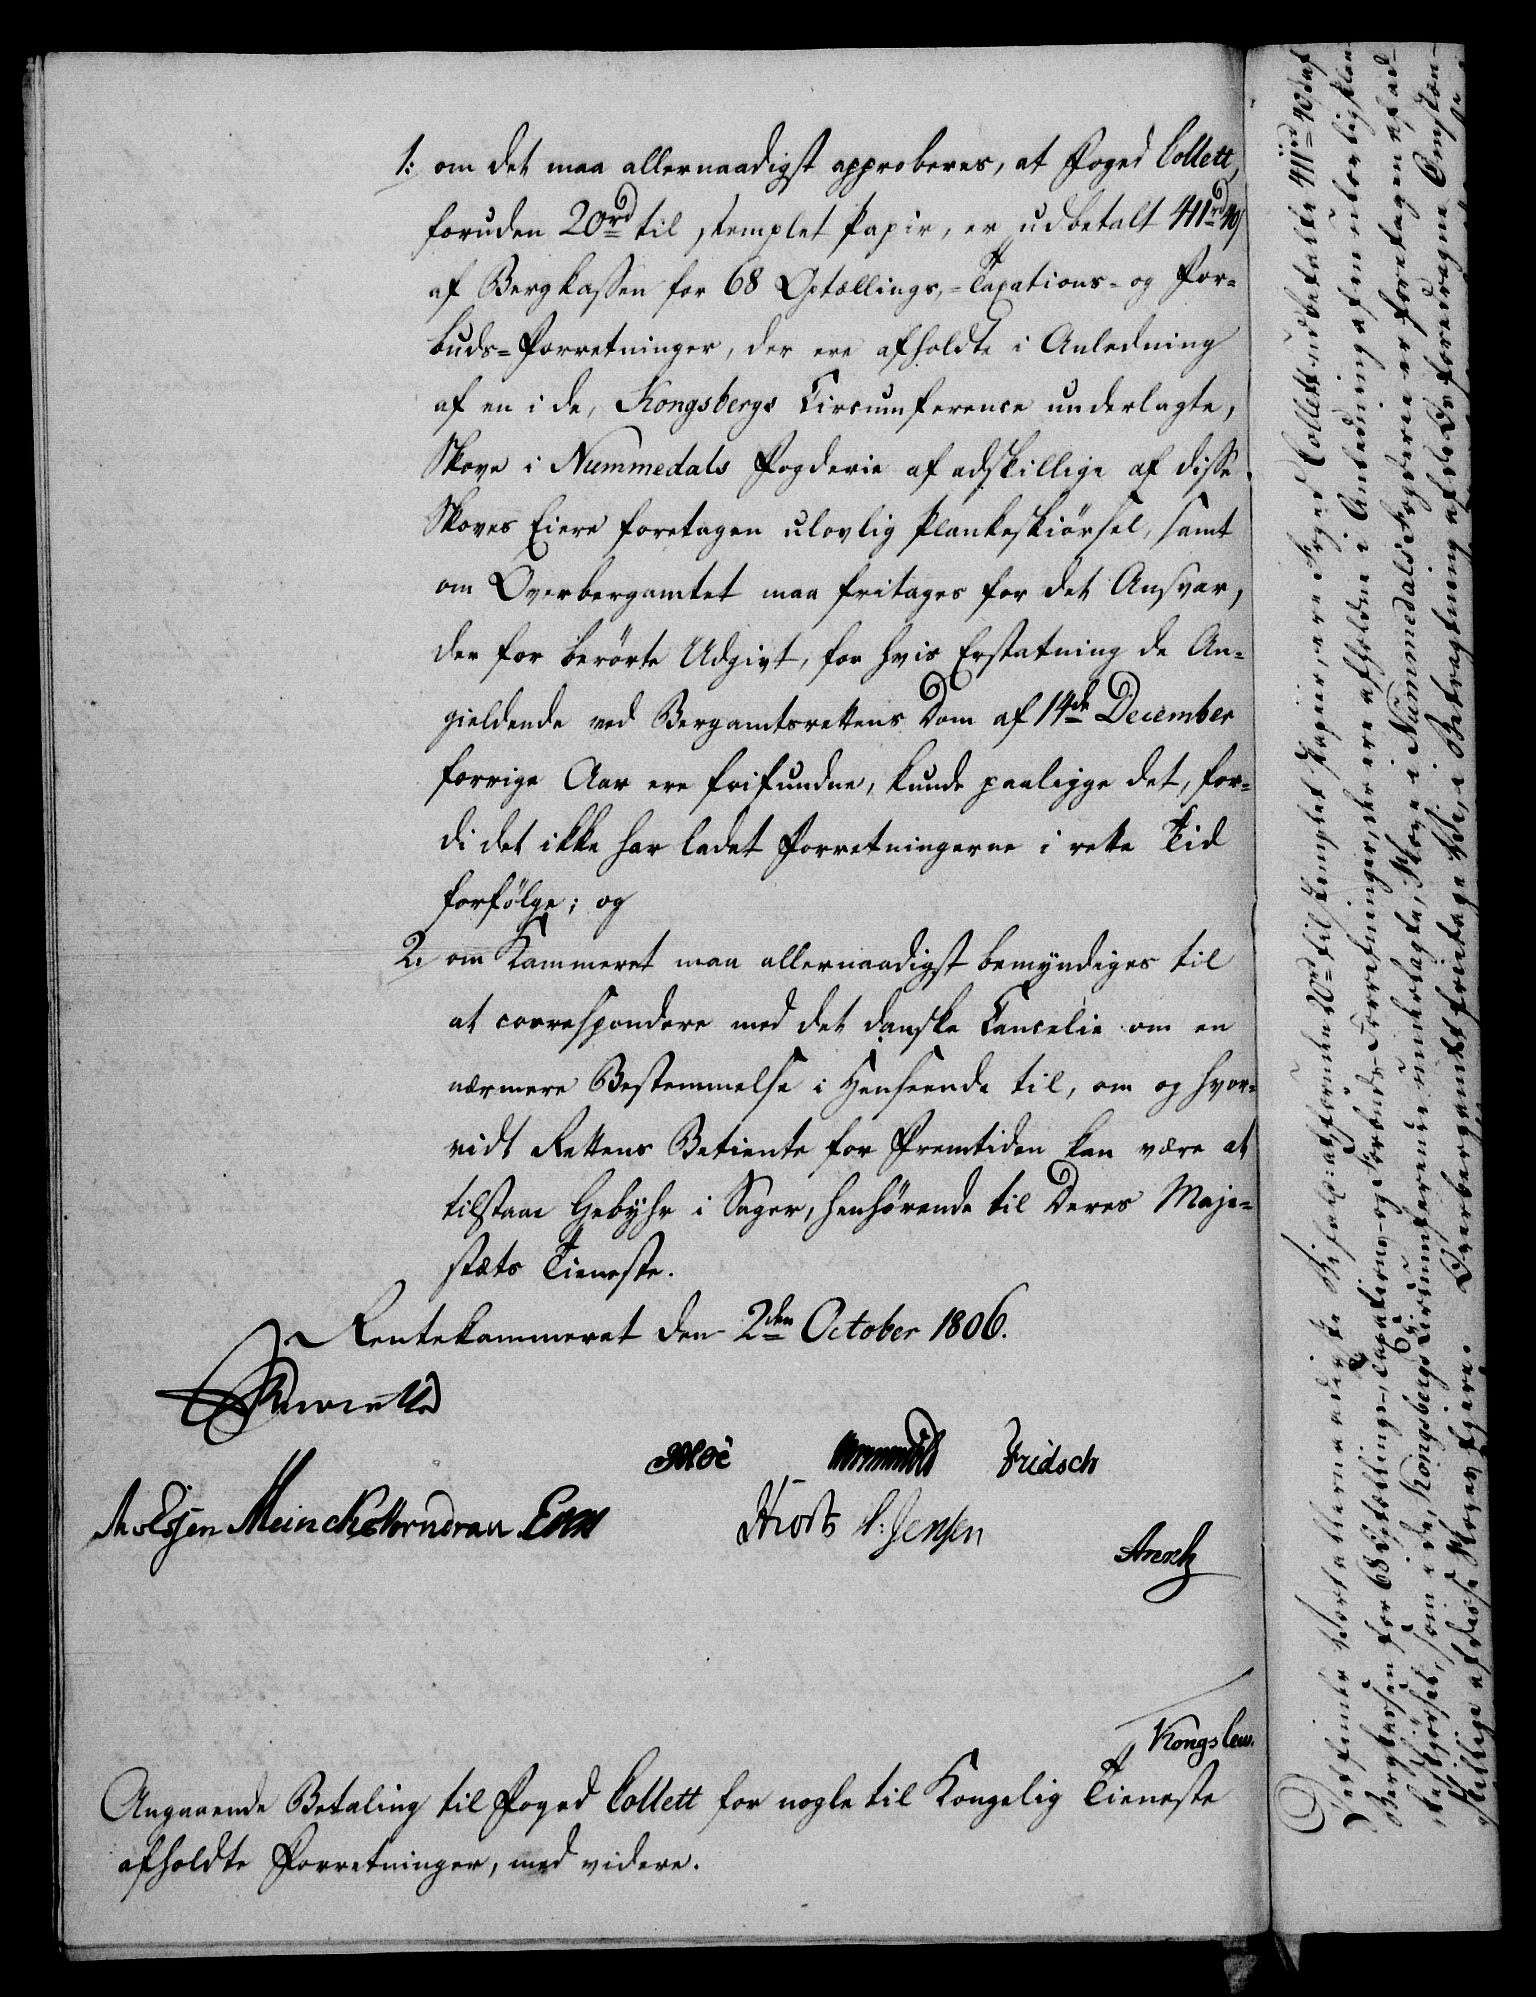 1: om det maa allernaadigst approberes, at Foged Collett,
foruden 20rd til stemplet Papir, er udbetalt 411rd 40s
af Bergkassen for 68 Optællings-, Taxations- og For-
buds-Forretninger, der ere afholdte i Anledning
af en i de, Kongsbergs Circumference underlagte,
Skove i Nummedals Fogderie af adskillige af disse
Skoves Eiere foretagen ulovlig Plankeskiörsel, samt
om Overbergamtet maa fritages for det Ansvar,
der for berörte Udgivt, for hvis Erstatning de An-
gieldende ved Bergamtsrettens Dom af 14de December
forrige Aar ere frifundne, kunde paaligge det, for-
di det ikke har ladet Forretningerne i rette Tid
forfölge; og
2. om Kammeret maa allernaadigst bemyndiges til
at correspondere med det danske Cancelie om en
nærmere Bestemmelse i Henseende til, om og hvor-
vidt Rettens Betiente for Fremtiden kan være at
tilstaae Gebyhr i Sager, henhörende til Deres Maje-
stæts Tieneste.
Rentekammeret den 2den October 1806.
Reventlow
Moe Fridsch
Meincke Vorndran
Hiort P: Jensen
Kongslew.
Angaaende Betaling til Foged Collett for nogle til Kongelig Tieneste
afholdte Forretninger, med videre.
Det finder Vort allernaadigste Bifald: at foruden 20rd til stemplet Papiir, ere Foged Collett udbetalte 411rd 40s af
Bergkassen for 68 Optællings-, Taxations- og Forbuds-Forretninger, der ere afholdne i Anledning af en ulovlig Plan-
keskjörsel, som i de, Kongsbergs Circumference underlagte, Skove i Nummedals Fogderie er foretagen af ad-
skillige af disse Skoves Ejere. Overbergamtet fritages